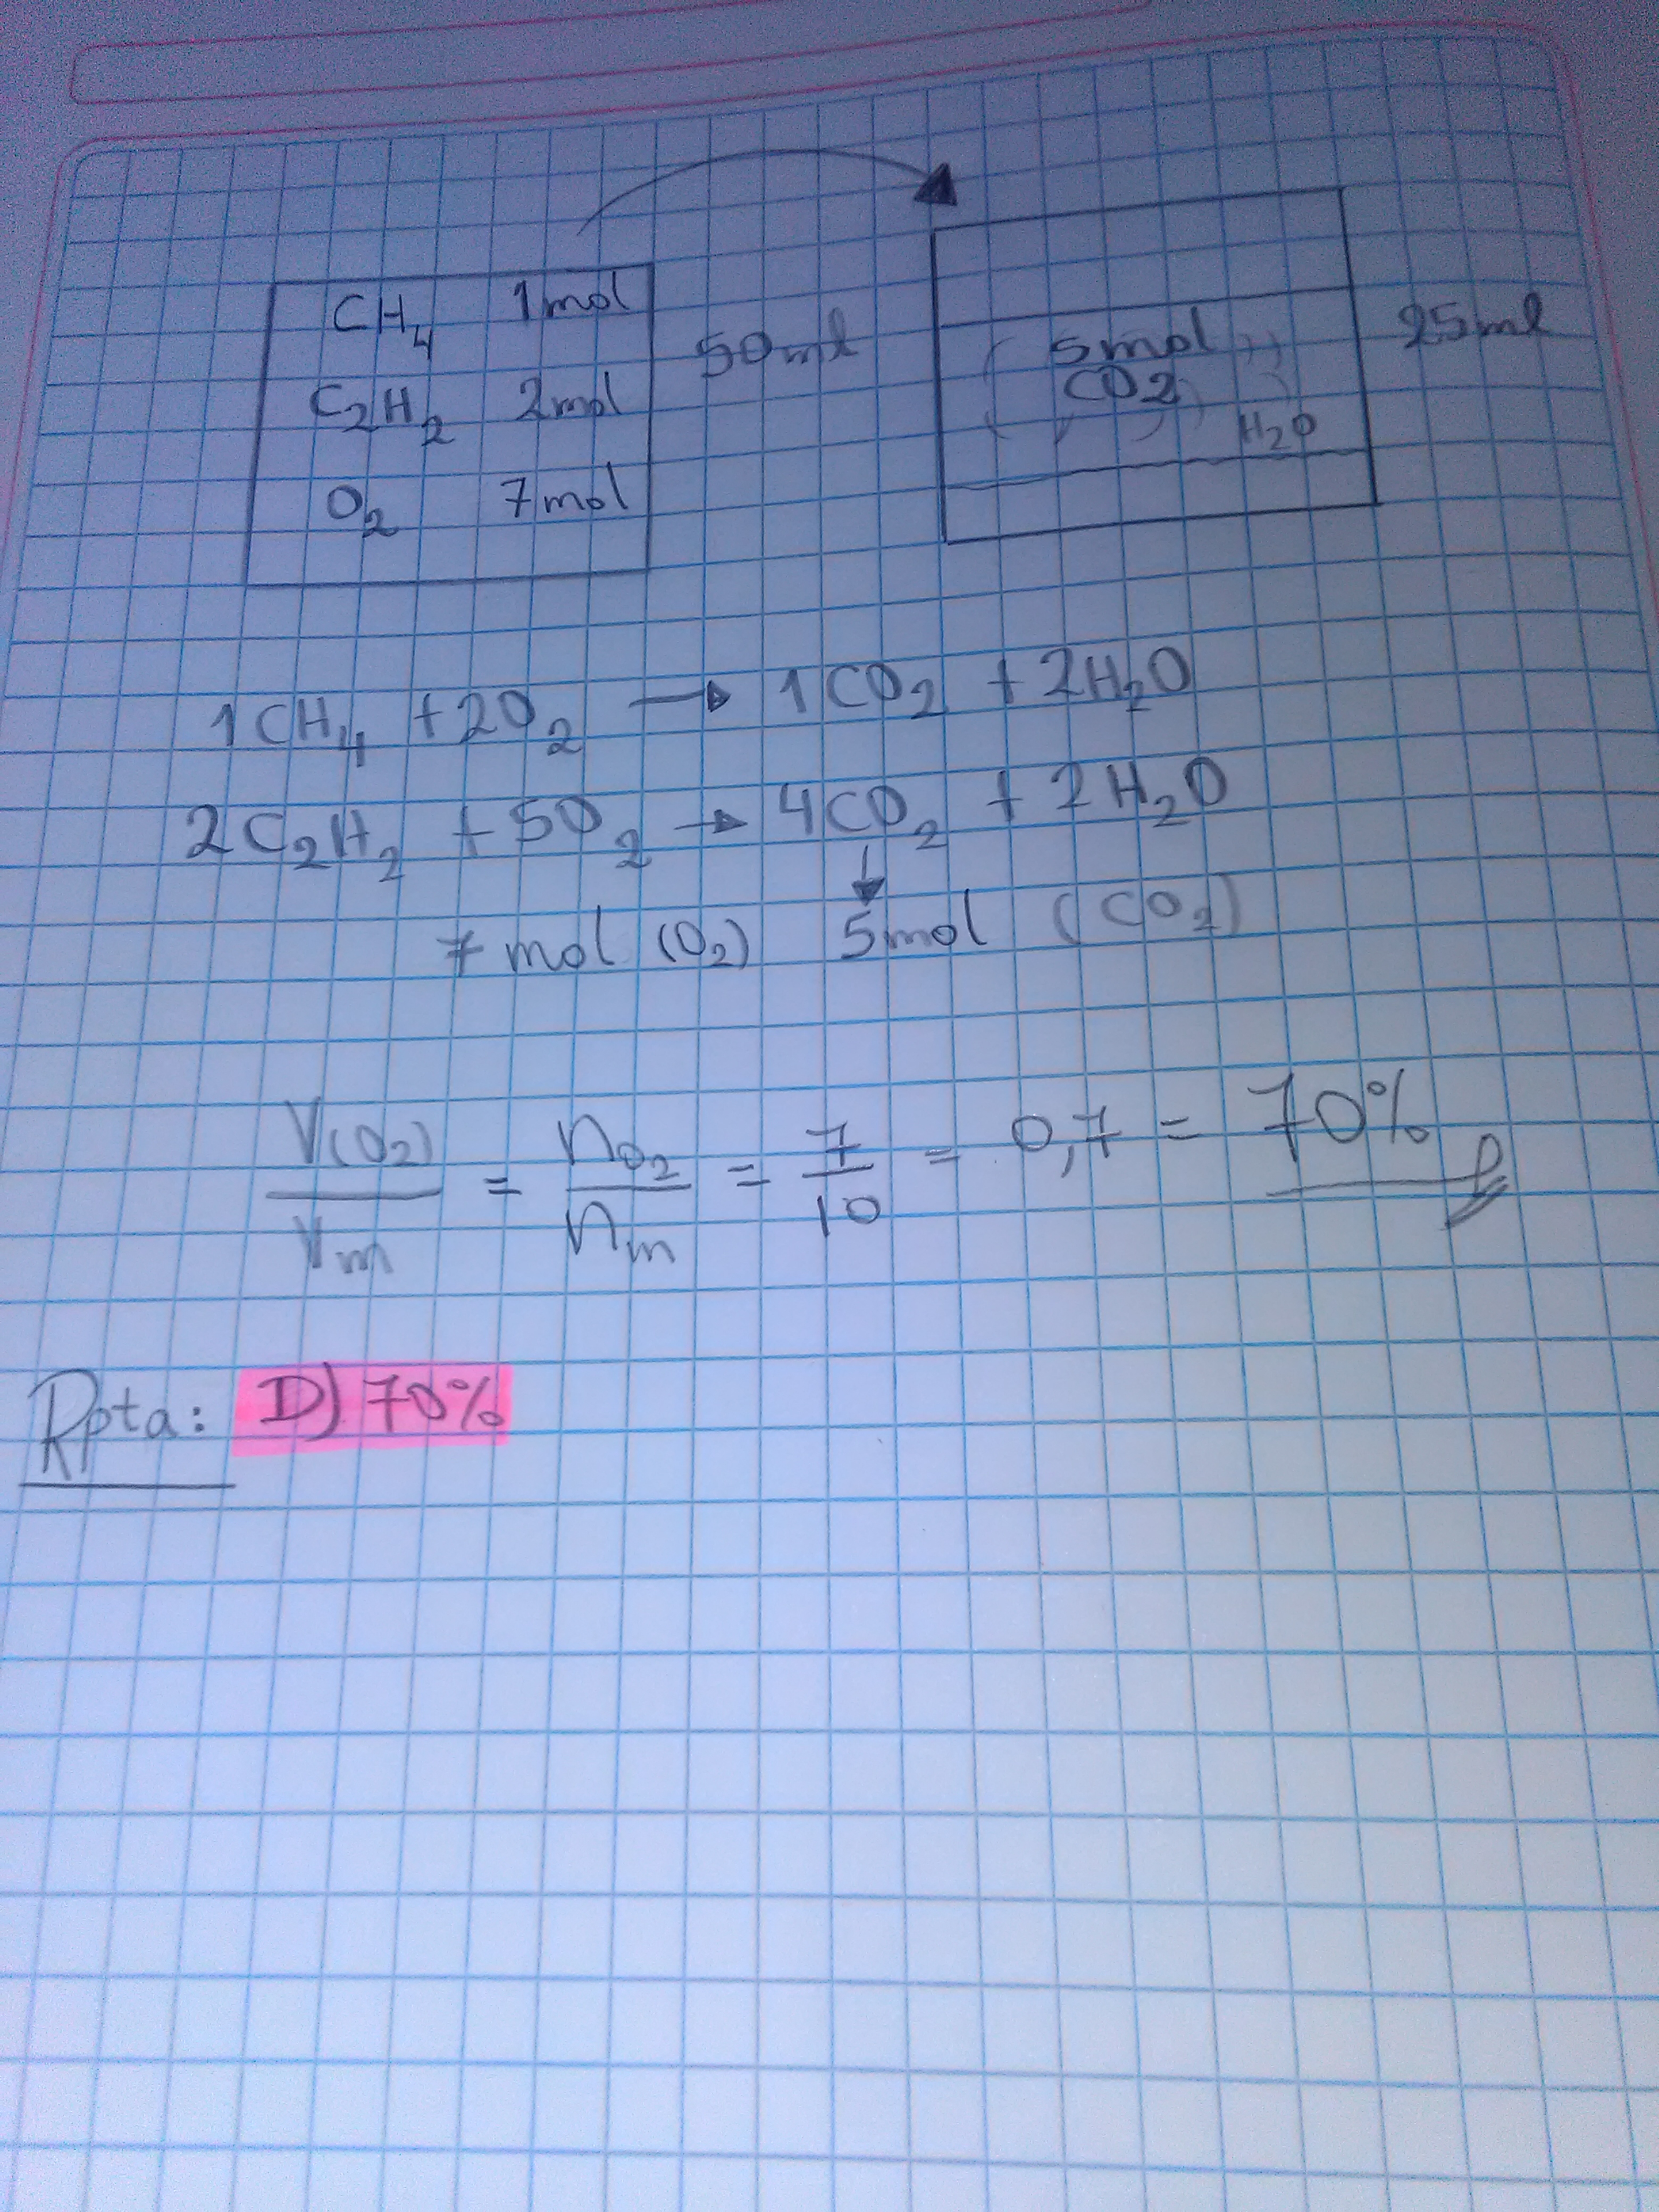 CH4 1mol
C2H2 2mol
O2 7mol
50ml
5mol
CO2
H2O
25ml
1CH4 + 2O2 → 1CO2 + 2H2O
2C2H2 + 5O2 → 4CO2 + 2H2O
7 mol (O2) 5mol (CO2)
V(O2)/Vm = nO2/nm = 7/10 = 0,7 = 70%
Rpta: D) 70%